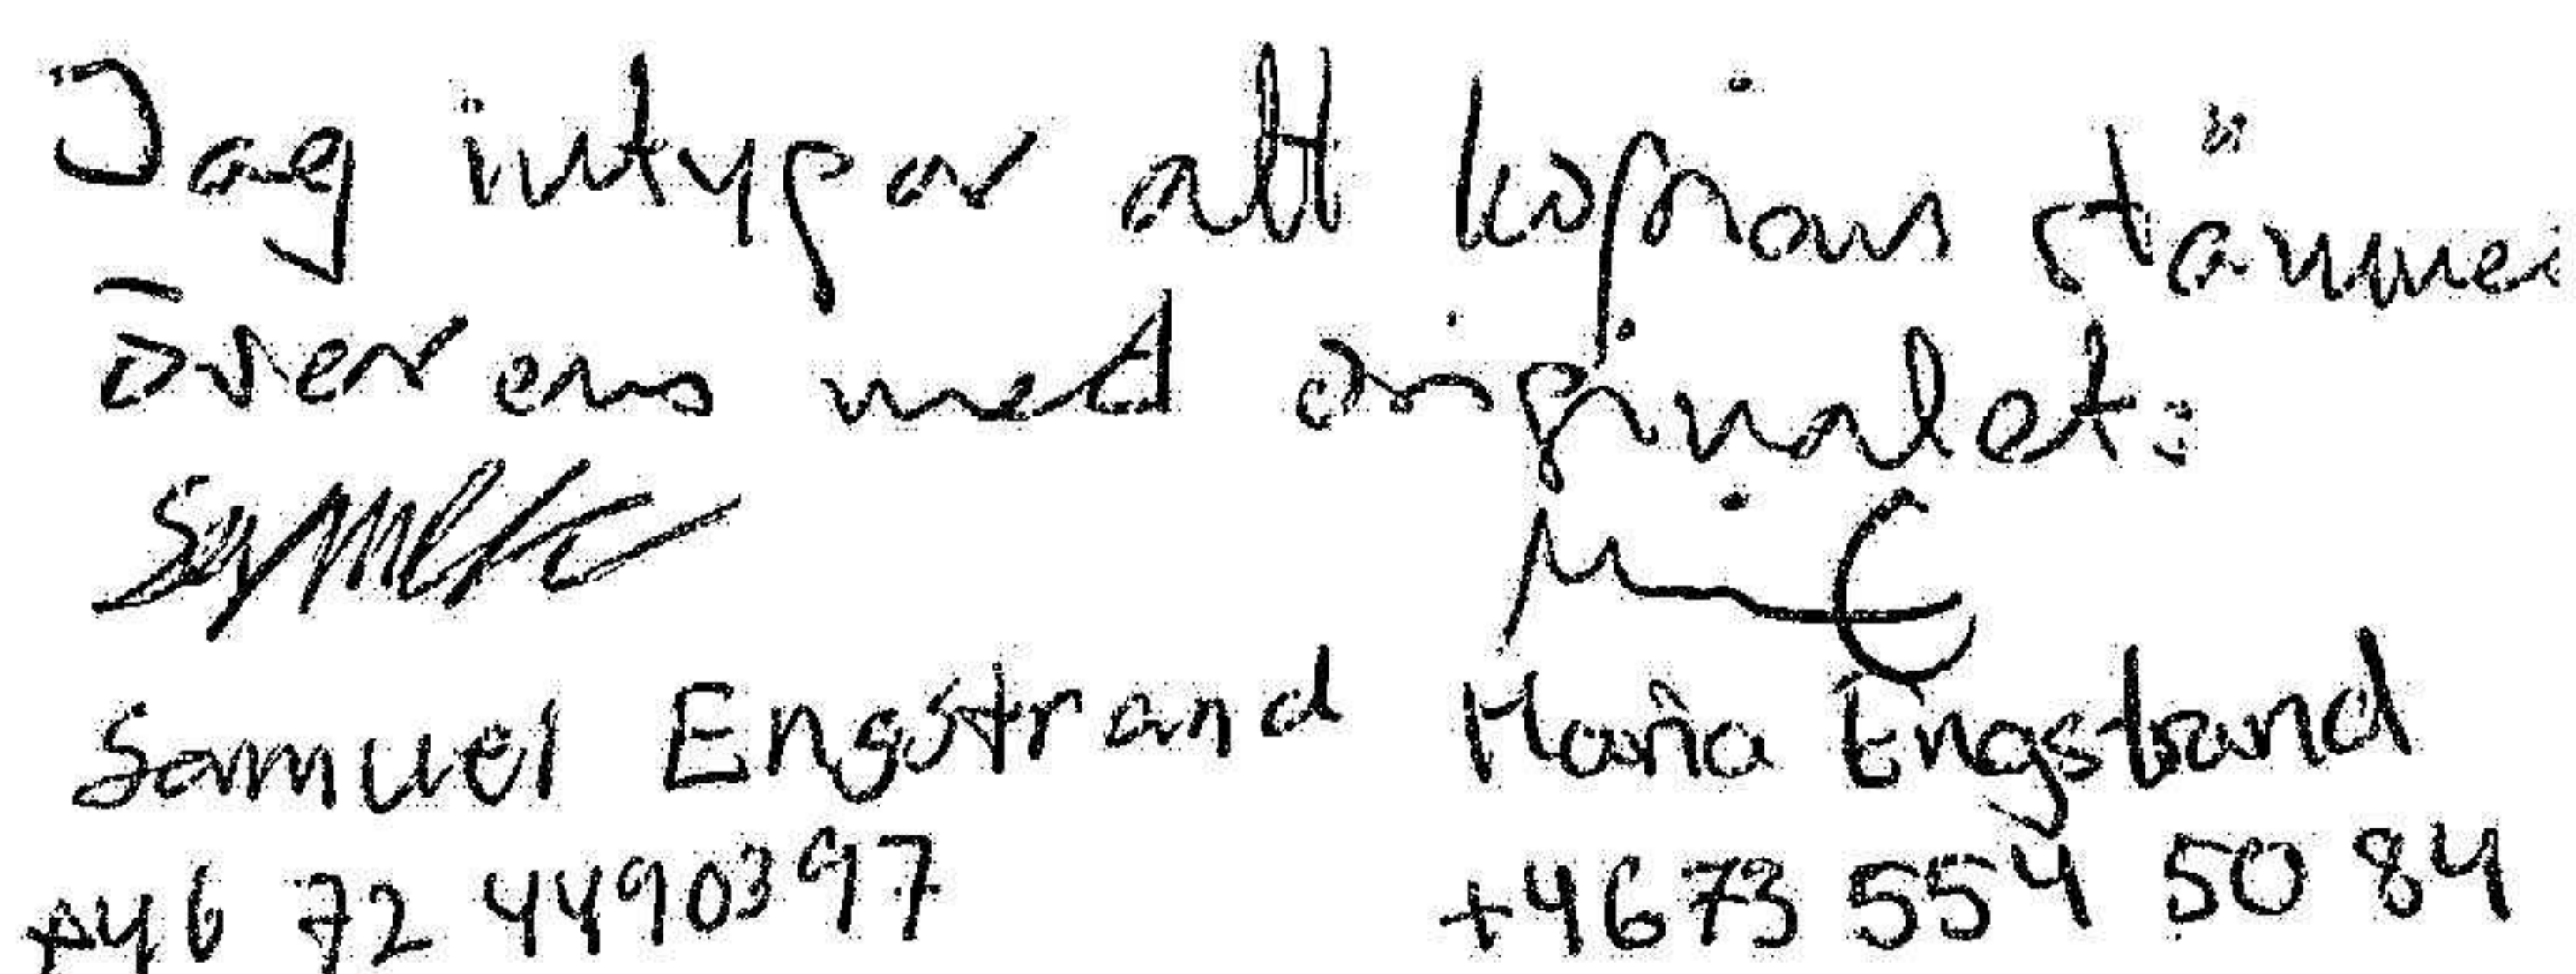 Jag intygar att kopian stämmer
överens med originalet.
Samuel Engstrand Maria Engstrand
+46 72 4490397 +4673 554 50 84